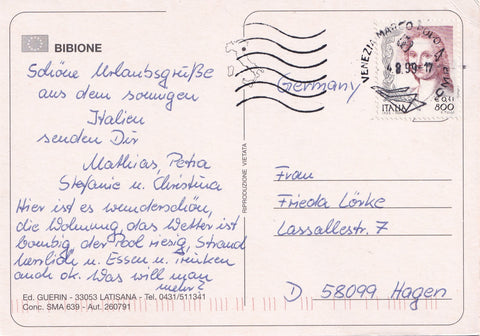 BIBIONE
Schöne Urlaubsgrüße
aus dem sonnigen
Italien
senden Dir
Mathias, Petra
Stefanie u. Christina
Hier ist es wunderschön,
die Wohnung, das Wetter ist
bombig, der Pool riesig, Strand
herrlich u. Essen u. Trinken
auch ok. Was will man
mehr?
Ed. GUERIN - 33053 LATISANA - Tel. 0431/511341
Conc. SMA 639 - Aut. 260791
RIPRODUZIONE VIETATA
Germany
VENEZIA MARCO POLO
4.8.99-17
ITALIA
€ 0,41
800
Frau
Frieda Lörke
Lassallestr. 7
D 58099 Hagen